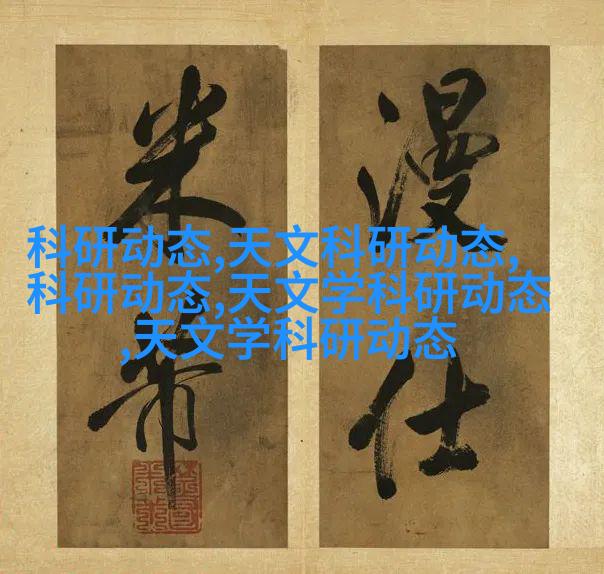 漫仕
米芾
科研动态,天文科研动态,
科研动态,天文学科研动态
,天文学科研动态